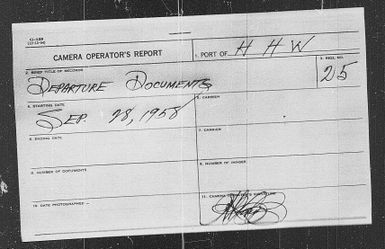 CAMERA OPERATOR'S REPORT
1. PORT OF H H W
2. BRIEF TITLE OF RECORDS
DEPARTURE DOCUMENTS
3. REEL NO.
25
4. STARTING DATE
SEP. 28, 1958
5. CARRIER
6. ENDING DATE
7. CARRIER
8. NUMBER OF DOCUMENTS
9. NUMBER OF
10. DATE PHOTOGRAPHED –
11. CAMERA OPERATOR'S SIGNATURE